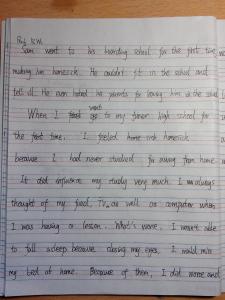 Sam went to his boarding school for the first time
making him homesick. He couldn't fit in the school and
fell ill. He even hated his parents for leaving him in the school
When I went to my senior high school for
the first time. I feeled homesick
because I had never studied far away from home
It did influence my study very much. I was always
thought of my food, TV as well as computer when
I was having a lesson. What's worse, I wasn't able
to fall asleep because closing my eyes, I would miss
my bed at home. Because of them, I did worse and